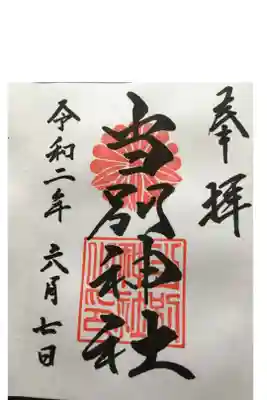 奉拝
当別神社
令和二年六月七日